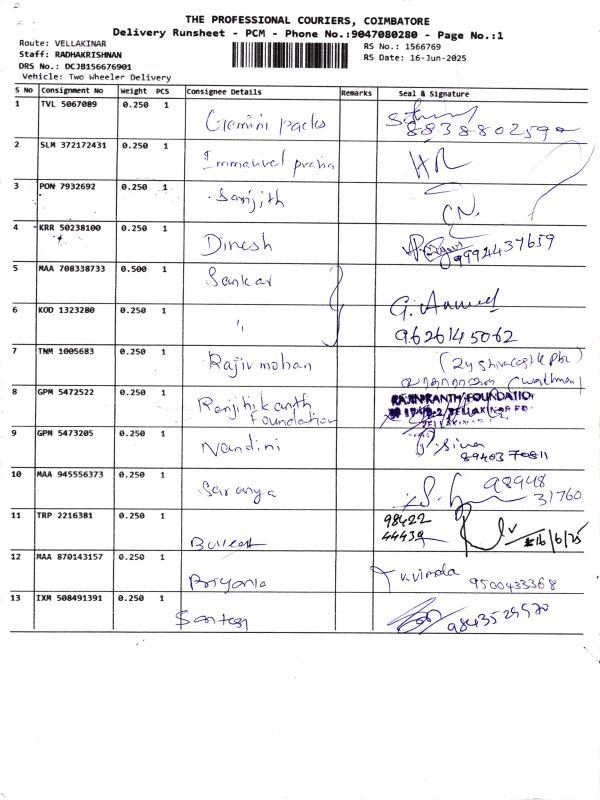 THE PROFESSIONAL COURIERS, COIMBATORE
Delivery Runsheet - PCM - Phone No.:9047080280 - Page No.:1
Route: VELLAKINAR
Staff: RADHAKRISHNAN
DRS No.: DCJB156676901
Vehicle: Two Wheeler Delivery
RS No.: 1566769
RS Date: 16-Jun-2025
S No Consignment No Weight PCS Consignee Details Remarks Seal & Signature
1 TVL 5067089 0.250 1 Gemini packs
2 SLM 372172431 0.250 1 Immanuvel HR
3 PON 7932692 0.250 1 Sanjith CN.
4 KRR 50238100 0.250 1 Dinesh 9994437659
5 MAA 708338733 0.500 1 Sankar
6 KOD 1323280 0.250 1 " 9626145062
7 TNM 1005683 0.250 1 Rajiv mohan (watchman)
8 GPM 5472522 0.250 1 Ranjithkanth Foundation
9 GPM 5473205 0.250 1 Nandini P. Siva 8940370811
10 MAA 945556373 0.250 1 Saranya 98948 31760
11 TRP 2216381 0.250 1 98422 44439 16/6/25
12 MAA 870143157 0.250 1 Priyanka K.Vimala 9500433368
13 IXM 508491391 0.250 1 Santosh 9843529970